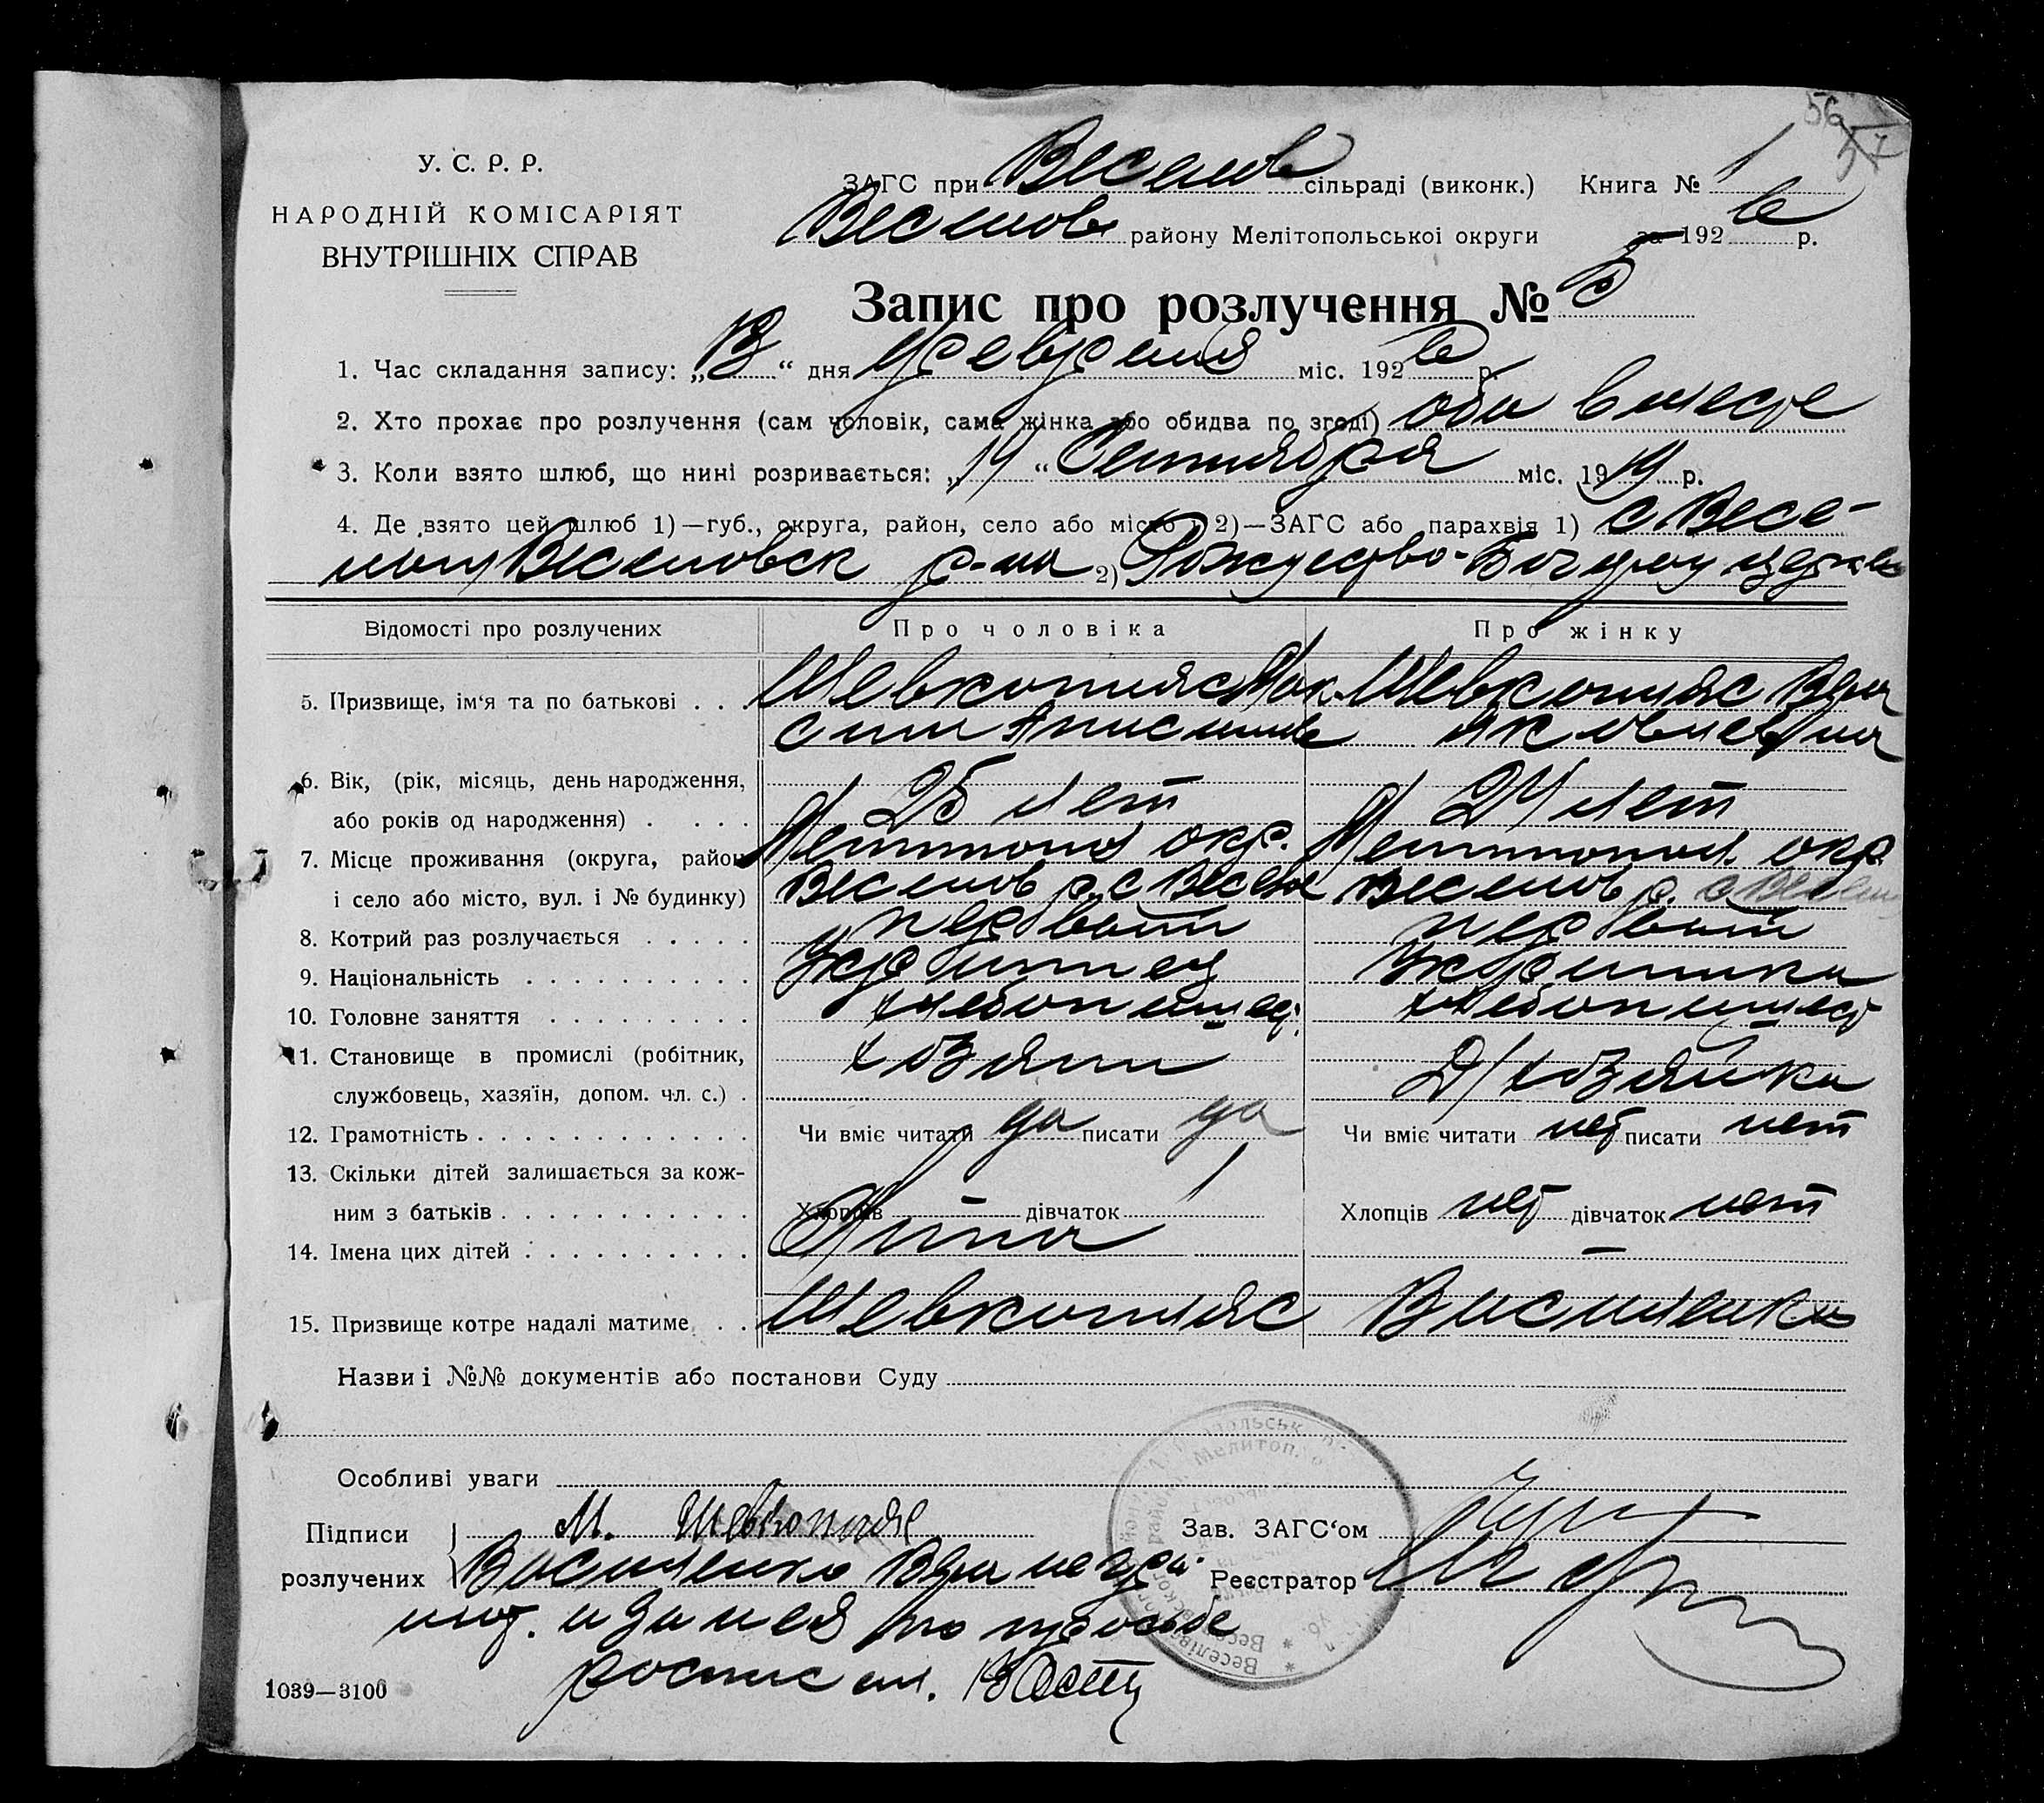 56
57
У. С. Р. Р.
НАРОДНІЙ КОМІСАРІЯТ
ВНУТРІШНІХ СПРАВ
ЗАГС при Веселов сільраді (виконк.) Книга № 1
Веселов району Мелітопольської округи за 1926 р.
Запис про розлучення № 5
1. Час складання запису: „13“ дня февраля міс. 1926 р.
2. Хто прохає про розлучення (сам чоловік, сама жінка або обидва по згоді) оба вместе
3. Коли взято шлюб, що нині розривається: „14“ Сентября міс. 1919 р.
4. Де взято цей шлюб 1)—губ., округа, район, село або місто 2)—ЗАГС або парахвія 1) с Весе-
лому Веселовск р-на 2) Рождество-Богород церкви
Відомості про розлучених Про чоловіка Про жінку
5. Призвище, ім‘я та по батькові . . . Шевкопляс Мак- Шевкопляс Вера
сим Анисимов Яковлевна
6. Вік, (рік, місяць, день народження,
або років од народження) . . . . 25 лет 24 лет
7. Місце проживання (округа, район Мелитопол окр. Мелитопол. окр
і село або місто, вул. і № будинку) Веселов р. с Веселое Веселов р. с Веселое
8. Котрий раз розлучається . . . . . первый первый
9. Національність . . . . . . . . . . Украинец Украинка
10. Головне заняття . . . . . . . . . хлебопашец хлебопашест
11. Становище в промислі (робітник,
службовець, хазяїн, допом. чл. с.) . хозяин Д/хозяйка
12. Грамотність . . . . . . . . . . . . Чи вміє читати да писати да Чи вміє читати нет писати нет
13. Скільки дітей залишається за кож-
ним з батьків . . . . . . . . . . . Хлопців — дівчаток 1 Хлопців нет дівчаток нет
14. Імена цих дітей . . . . . . . . . . Нина —
15. Призвище котре надалі матиме . . Шевкопляс Василенко
Назви і №№ документів або постанови Суду
Особливі уваги
Підписи М. Шевкопляс Зав. ЗАГС‘ом
розлучених Василенко Вера негра- Реєстратор
мот. и за нея по просьбе
роспис ал.
1039—3100